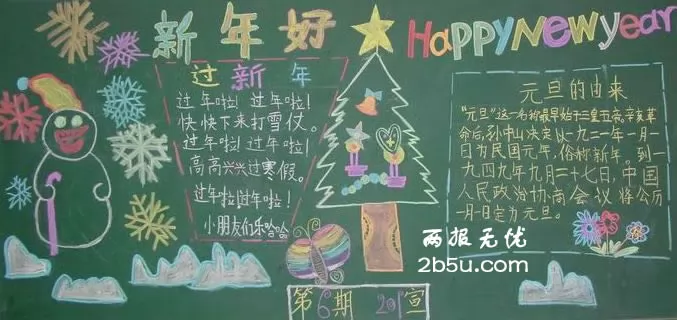 新年好
HAPPY New year
过新年
过年啦! 过年啦!
快快下来打雪仗。
过年啦! 过年啦!
高高兴兴过寒假。
过年啦!过年啦!
小朋友们乐哈哈
元旦的由来
"元旦"这一名的最早始于三皇五帝,辛亥革
命后,孙中山决定以一九二一年一月一
日为民国元年,俗称新年。到一
九四九年九月二十七日,中国
人民政治协商会议将公历
一月一日定为元旦。
两报无优
2b5u.com
第6期 201宣